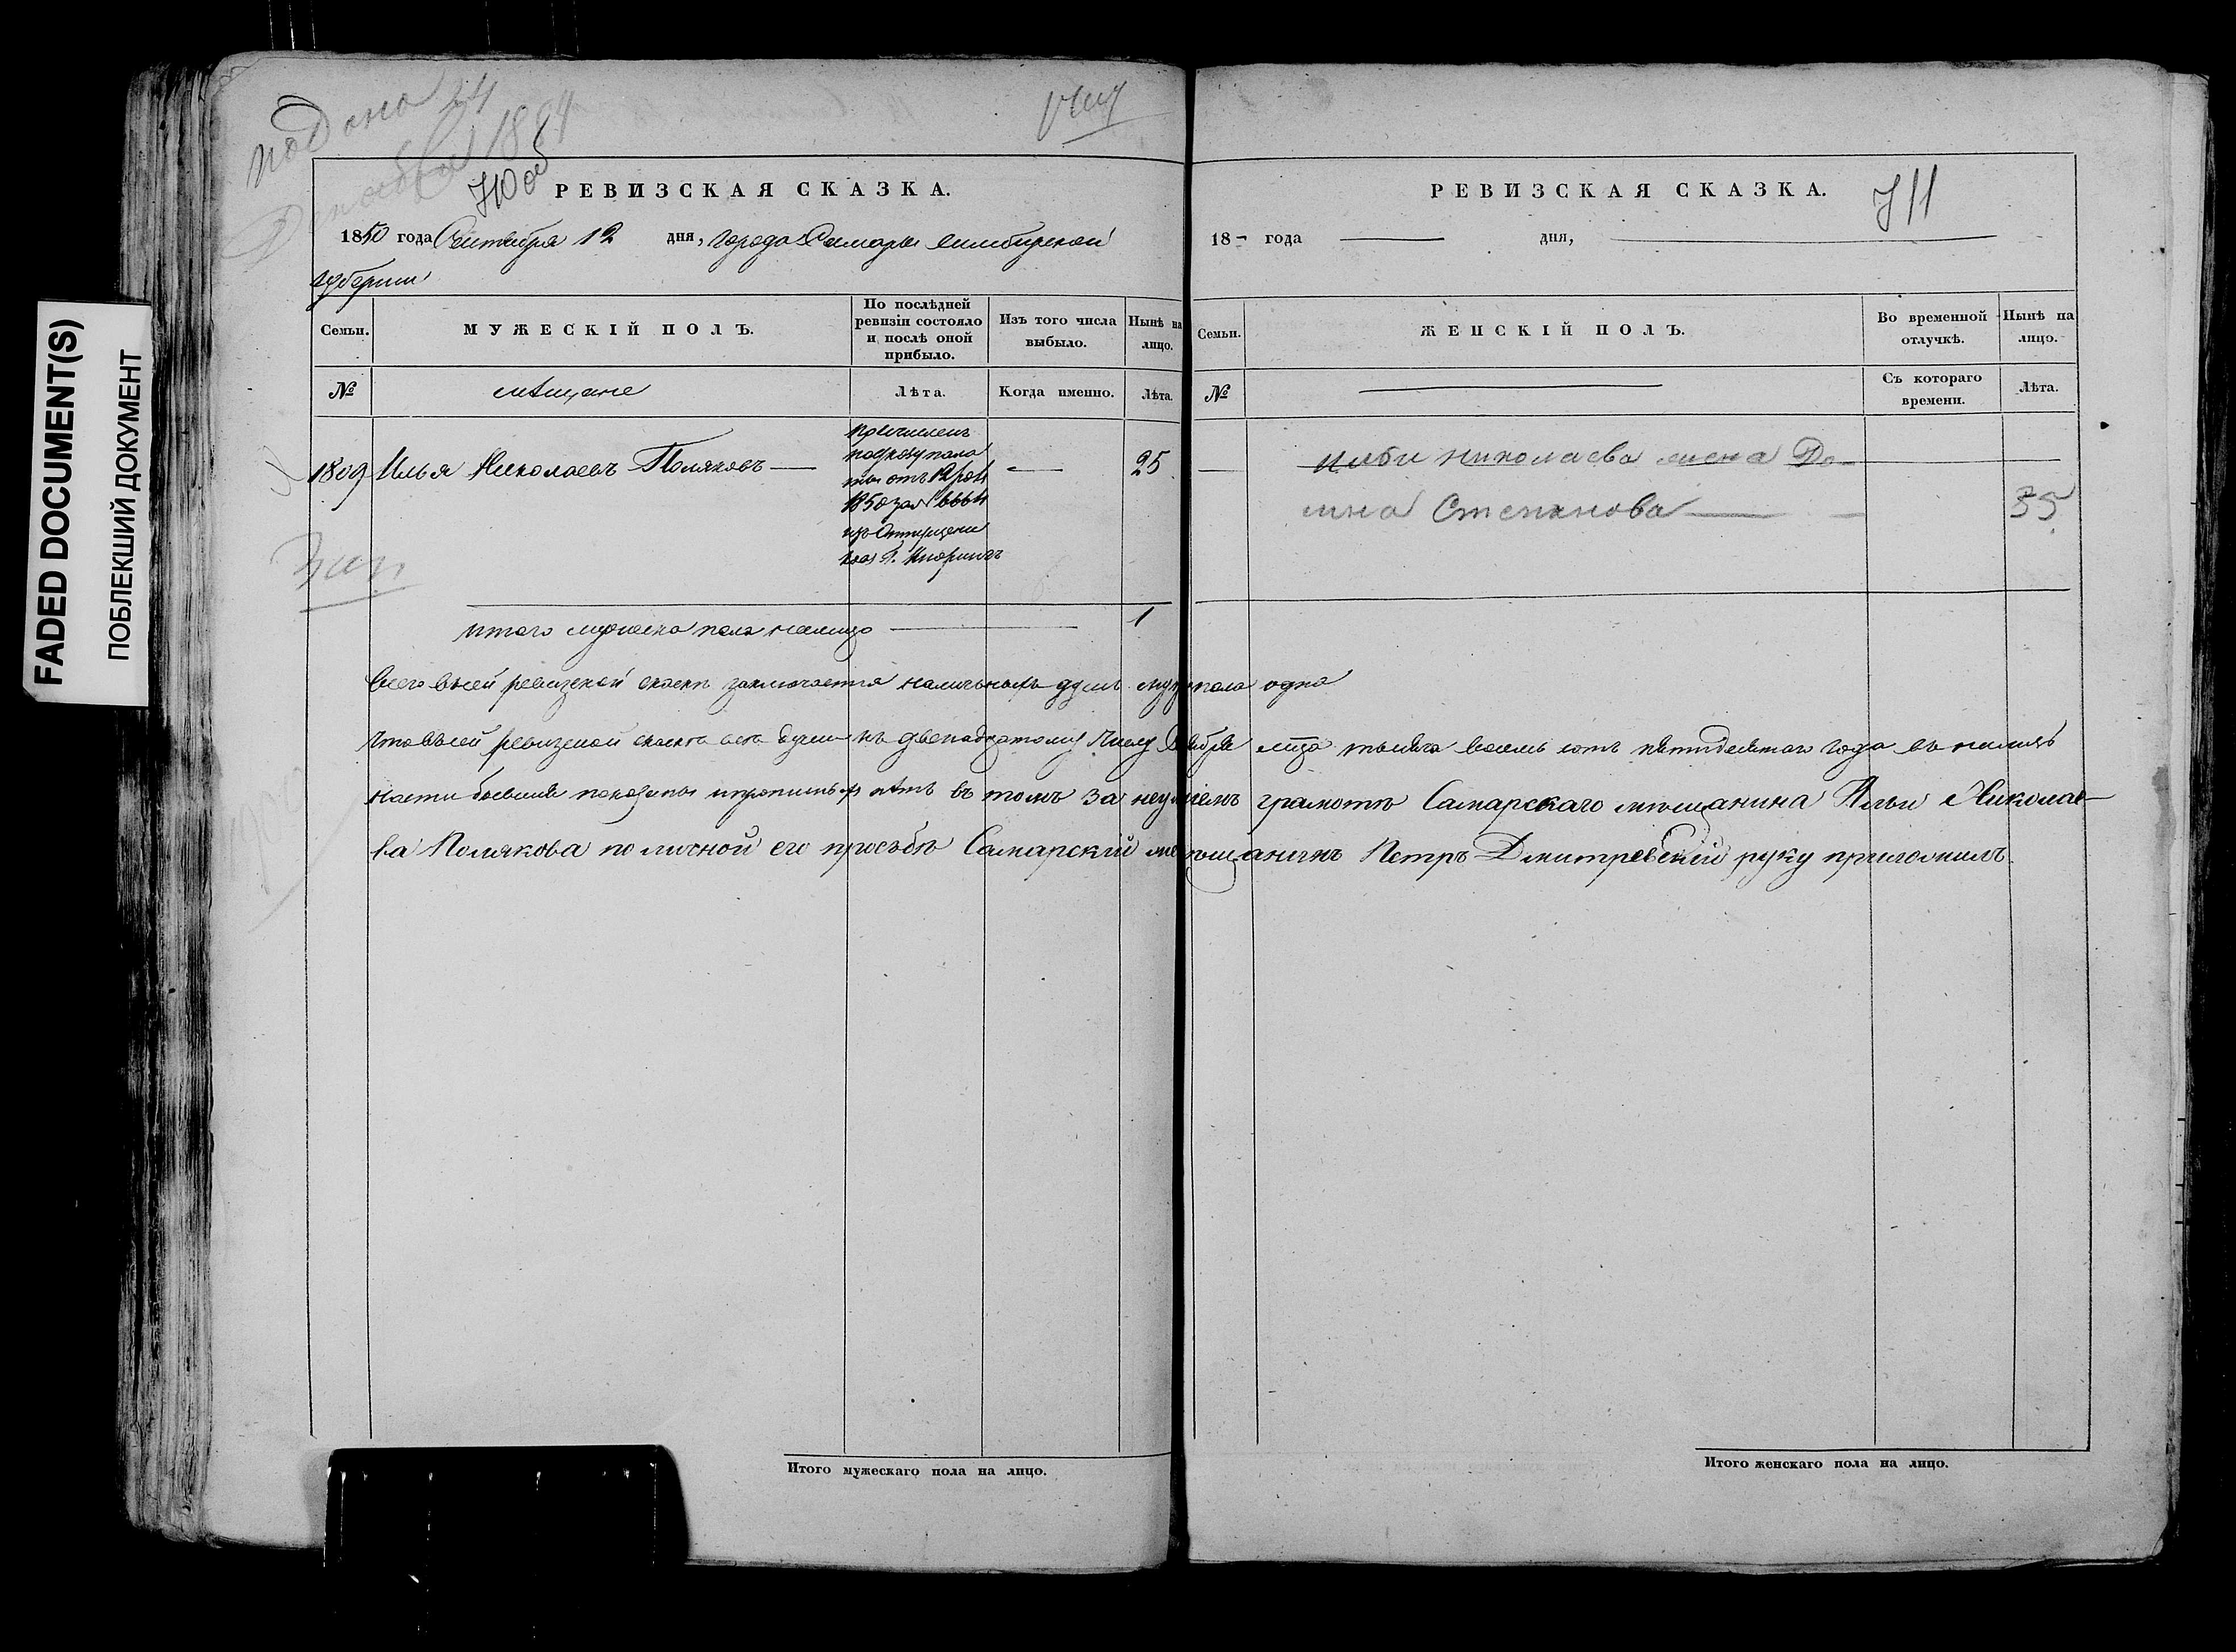 FADED DOCUMENT(S)
ПОБЛЕКШИЙ ДОКУМЕНТ
подано 24
710 об
РЕВИЗСКАЯ СКАЗКА.
1850 года Сентября 12 дня, города Самары Симбирской
губернии
Семьи.
МУЖЕСКІЙ ПОЛЪ.
По послѣдней ревизіи состояло и послѣ оной прибыло.
Изъ того числа выбыло.
Нынѣ на лицо.
№
мѣщане
Лѣта.
Когда именно.
Лѣта.
1809 Илья Николаевъ Поляковъ — 25
причисленъ
1850
итого мужеска пола налицо 1
РЕВИЗСКАЯ СКАЗКА.
711
18 — года — дня,
Семьи.
ЖЕНСКІЙ ПОЛЪ.
Во временной отлучкѣ.
Нынѣ на лицо.
№
Съ котораго времени.
Лѣта.
Ильи Николаева жена До-
мна Степанова — 35
всего в сей ревизской сказкѣ заключается наличныхъ душъ муж пола одна
что в сей ревизской сказкѣ всѣ души къ двенадцатому числу мца тысяча восемь сотъ пятидесятаго года въ налич
ности бывшия показаны и прописныхъ нѣтъ въ томъ за неумѣніемъ грамотѣ Самарскаго мѣщанина Ильи Николае-
ва Полякова по личной его просьбѣ Самарскій мѣщанинъ Петръ Дмитревскій руку приложилъ
Итого мужескаго пола на лицо.
Итого женскаго пола на лицо.